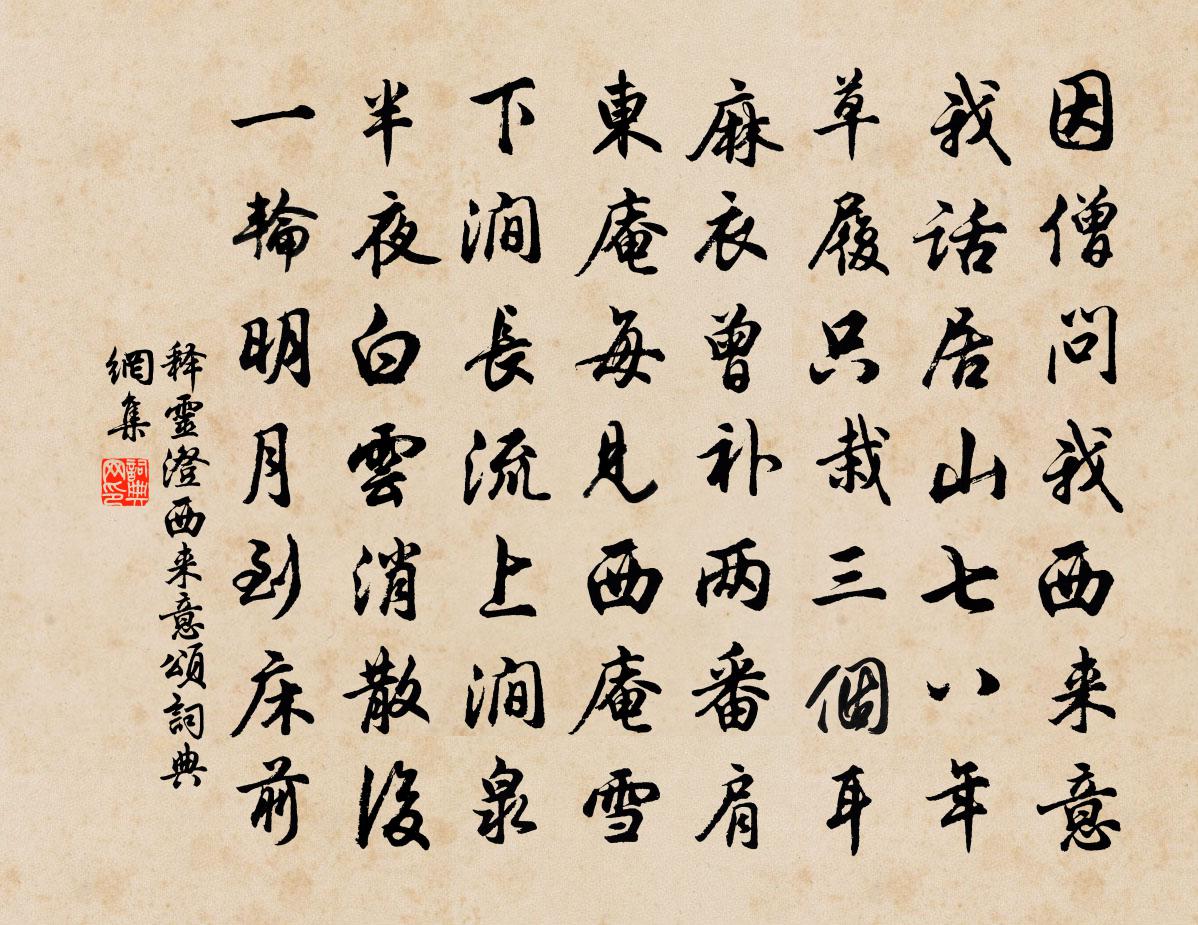 因僧問我西来意
我話居山七八年
草履只栽三個耳
麻衣曾补两番肩
東庵每見西庵雪
下澗長流上澗泉
半夜白雲消散後
一輪明月到床前
释靈澄西来意頌詞典
網集
詞典
网印